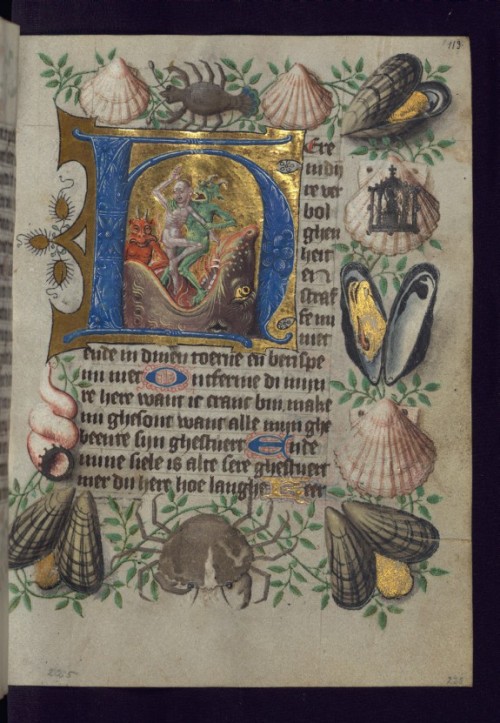 113
HEre
in dijn
re ver
bol
ghen
heit
en
straf
fe mi
niet
ende in dinen toerne en berispe
mi niet Ontferme di mijn
re here want ic cranc bin make
mi ghesont want alle mijn ghe
beente sijn ghestuert Ende
mine siele is alte sere ghestuert
mer du here hoe langhe Keer
225